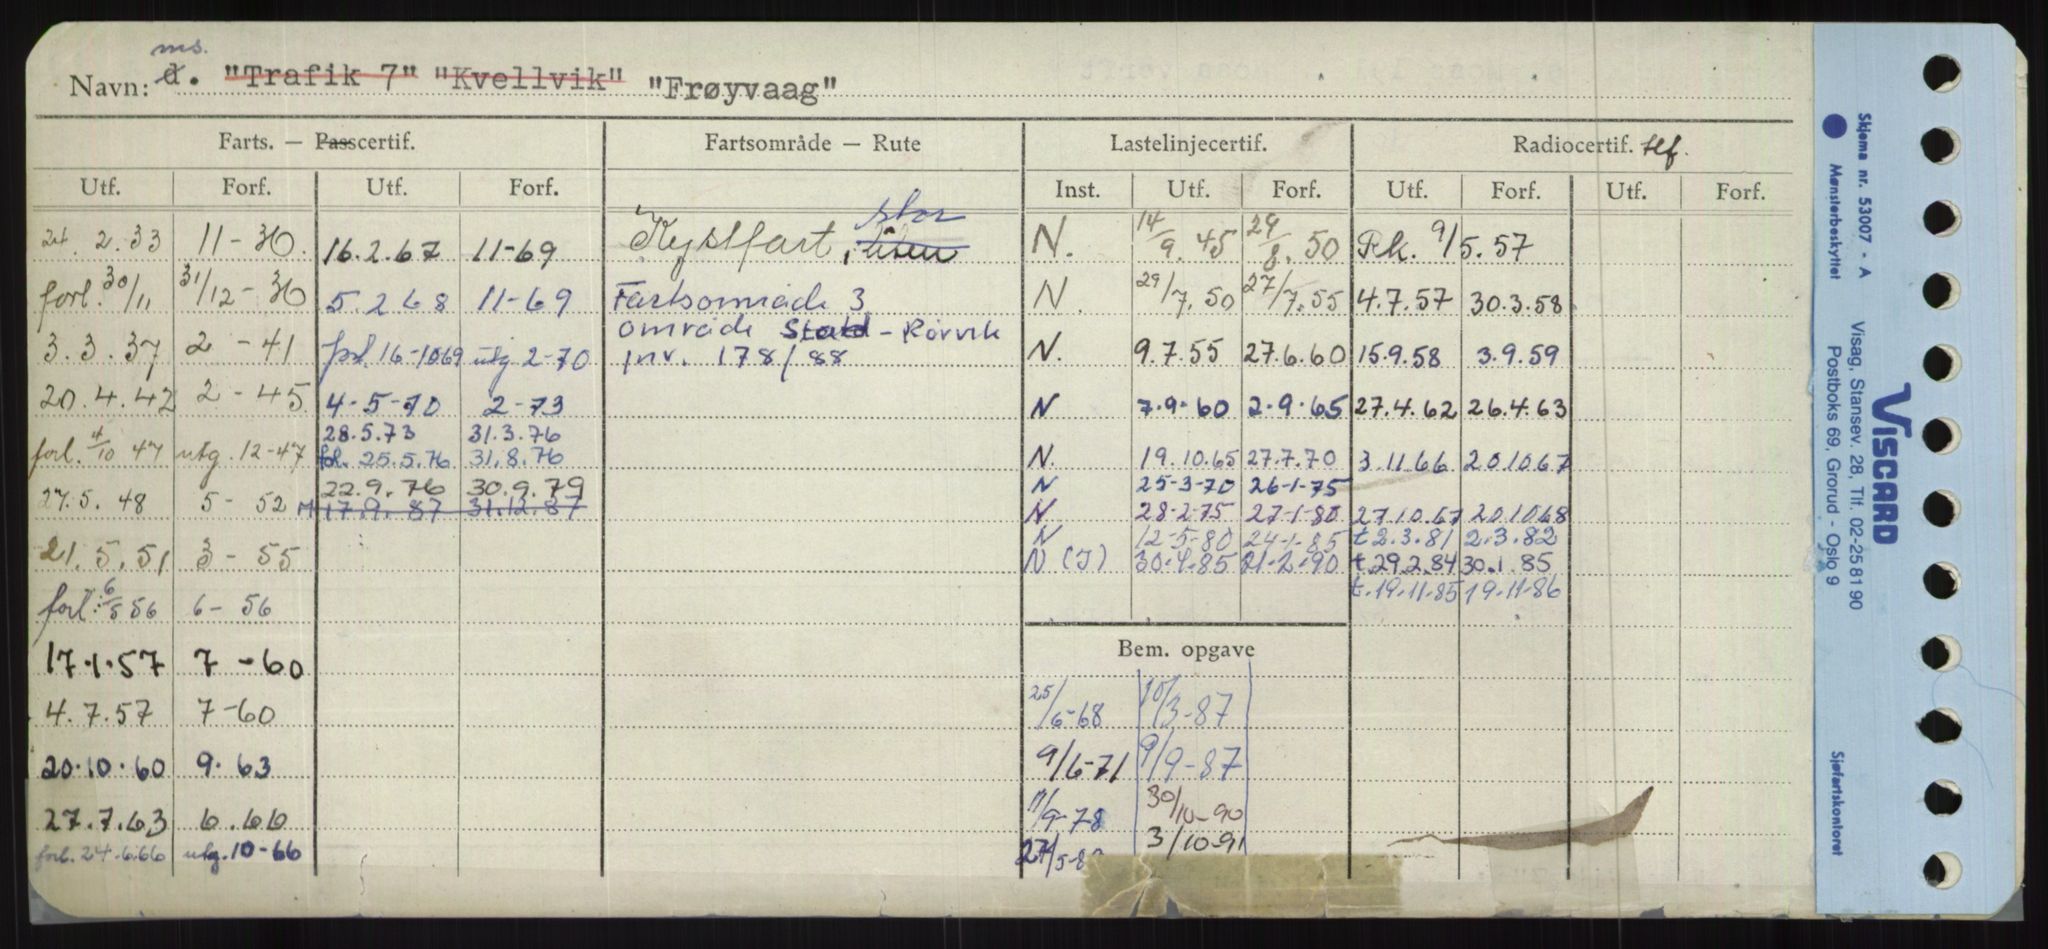 ms.
Navn: d. "Trafik 7" "Kvellvik" "Frøyvaag"
Farts. — Passcertif. Fartsområde — Rute Lastelinjecertif. Radiocertif. tlf.
Utf. Forf. Utf. Forf. Inst. Utf. Forf. Utf. Forf. Utf. Forf.
stor
2.33 11-36. 16.2.67 11-69 Kystfart, liten N. 14/9.45 29/8.50 Pk. 9/5.57
forl. 30/11 31/12-36 5.2.68 11-69 Fartsområde 3 N. 29/7.50 27/7.55 4.7.57 30.3.58
område Stad - Rørvik
3.3.37 2-41 forl. 16-1069 utg 2-70 inr. 178/88 N. 9.7.55 27.6.60 15.9.58 3.9.59
20.4.42 2-45 4-5-70 2-73 N 7.9.60 2.9.65 27.4.62 26.4.63
28.5.73 31.3.76
forl. 4/10 47 utg. 12-47 fol. 25.5.76 31.8.76 N. 19.10.65 27.7.70 3.11.66 20.10.67
22.9.76 30.9.79 N 25-3-70 26-1-75
27.5.48 5-52 M 17.9.87 31.12.87 N 28-2-75 27-1-80 27.10.67 20.10.68
N 12-5-80 24-1-85 t 2.3.81 2.3.82
21.5.51 3-55 N (I) 30.4.85 21-2-90 t.29.2.84 30.1.85
forl. 6/5 56 6-56 t.19.11.85 19.11.86
17.1.57 7-60 Bem. opgave
4.7.57 7-60 25/6-68 10/3-87
20.10.60 9.63 9/6-71 9/9-87
27.7.63 6.66 11/9-78 30/10-90
forl. 24.6.66 utg. 10-66 27/5-8 3/10-91
Skjema nr. 53007 - A
Mønsterbeskyttet
VISCARD
Visag, Stansev. 28, Tlf. 02-25 81 90
Postboks 69, Grorud - Oslo 9
Sjøfartskontoret